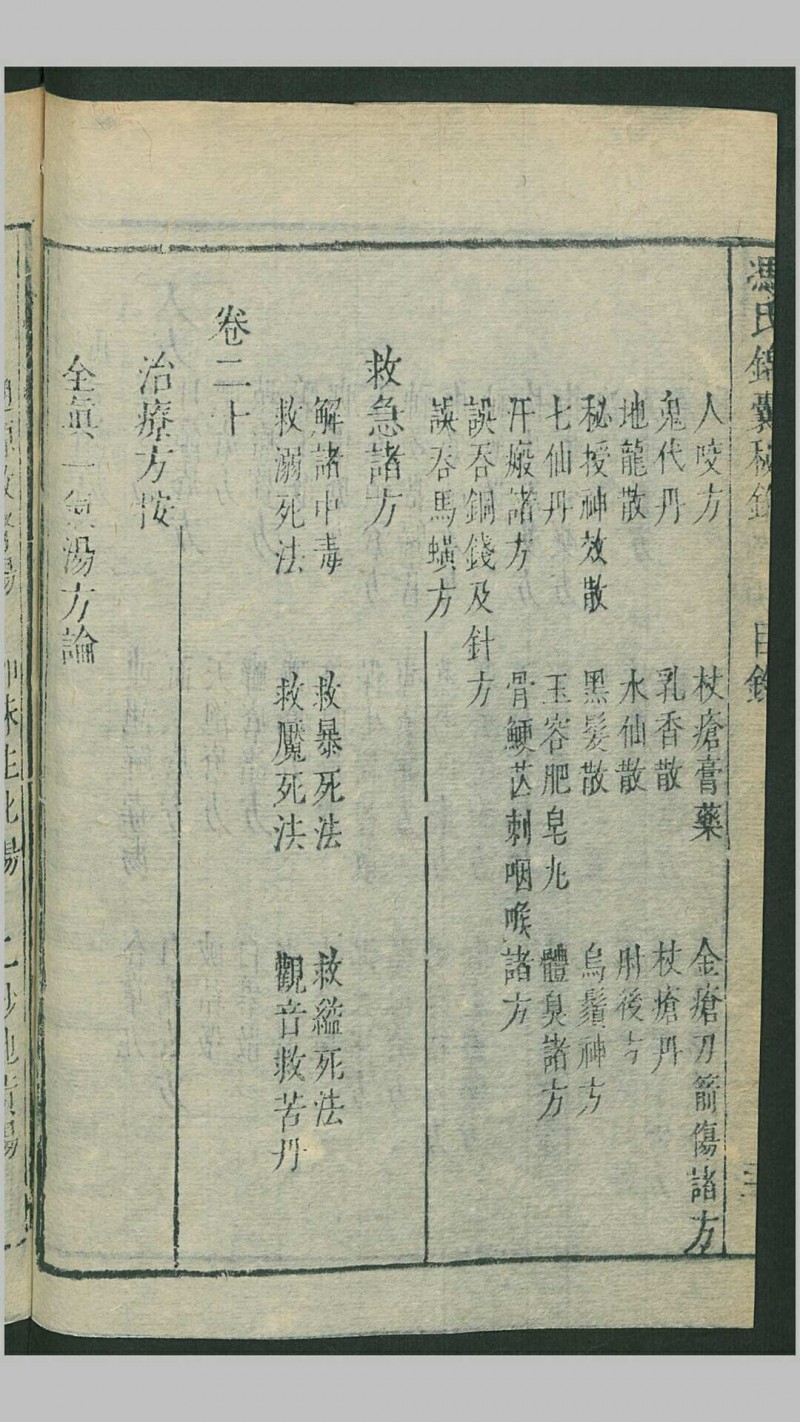 馮氏錦囊秘錄 目錄
人咬方 杖瘡膏藥 金瘡刀箭傷諸方
鬼代丹 乳香散 杖瘡丹
地龍散 水仙散 肘後方
秘授神效散 黑髮散 烏鬚神方
七仙丹 玉容肥皂丸 體臭諸方
汗瘢諸方 骨鯁芒刺咽喉諸方
誤吞銅錢及針方
誤吞馬蟥方
救急諸方
解諸中毒 救暴死法 救縊死法
救溺死法 救魘死法 觀音救苦丹
卷二十
治療方按
全眞一氣湯方論